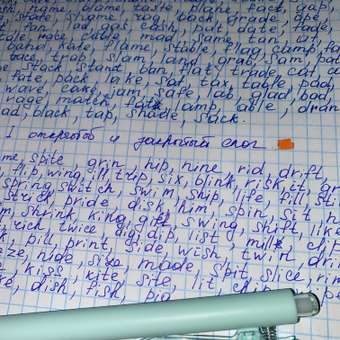 name, blame, plane, face, gap,
state, shame, rag, back, grade, ape,
fan, lad, gas, cash, put, age, fade,
tale, hate, cable, mad, same, tan,
band, Kate, flame, stable, flag, camp, fa
back, trap, slam, land, grab, Sam, pa
me, stack, stand, ban, fat, trade, cat, a
fate, pack, lake, pal, tap, table, pad,
wave, cake, jam, safe, lab, glad, ba
rage, match, lamp, able,
ad, black, tap, shade, sack.
I открытый и закрытый слог
me, spite, grin, hip, nine, rid, drift,
, flip, wing, ill, trip, six, blink, risk, it, gr
spring, switch, swim, ship, life, fill, sti
strict, pride, disk, him, spin, sit, h
m, shrink, king, gift, swing, shift, like
rich, twice, dig, dip, list, milk, chip
k, pill, print, side, wish, twin, dri
ze, hide, size, made, spit, slice, rim
, kiss, kite, site, lit, chip,
e, dish, fish, pig,